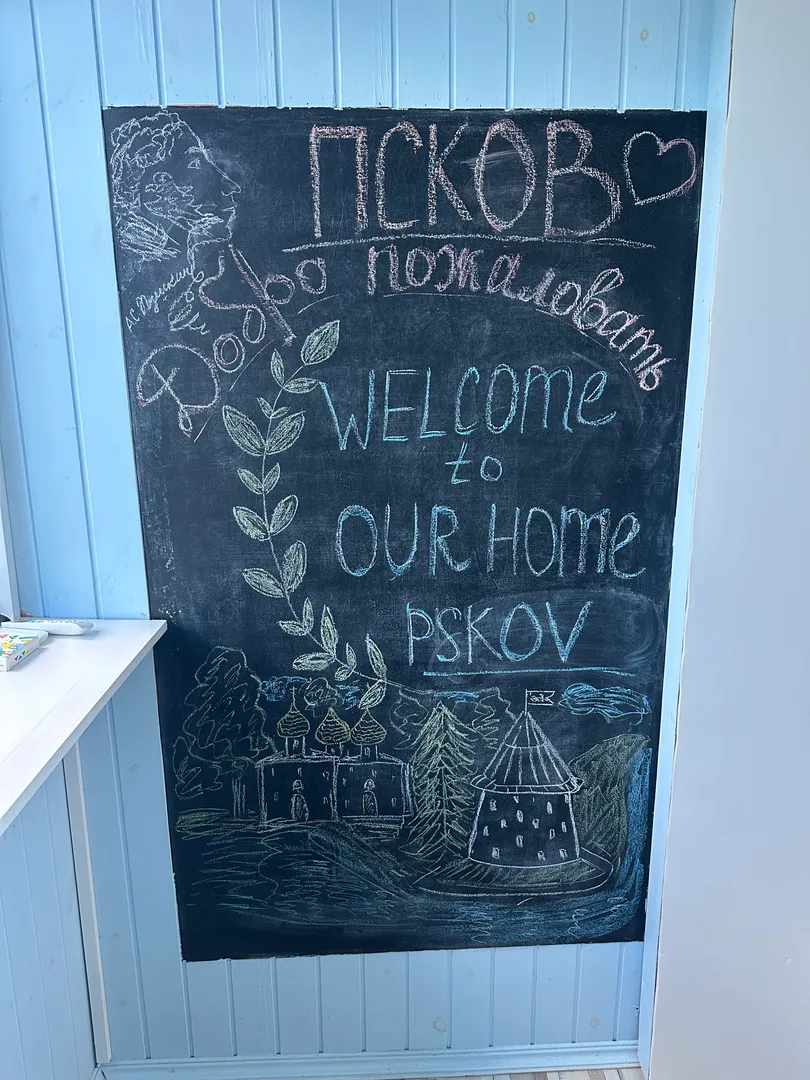 ПСКОВ
Добро пожаловать
А.С.Пушкин
WELCOME
to
OUR HOME
PSKOV